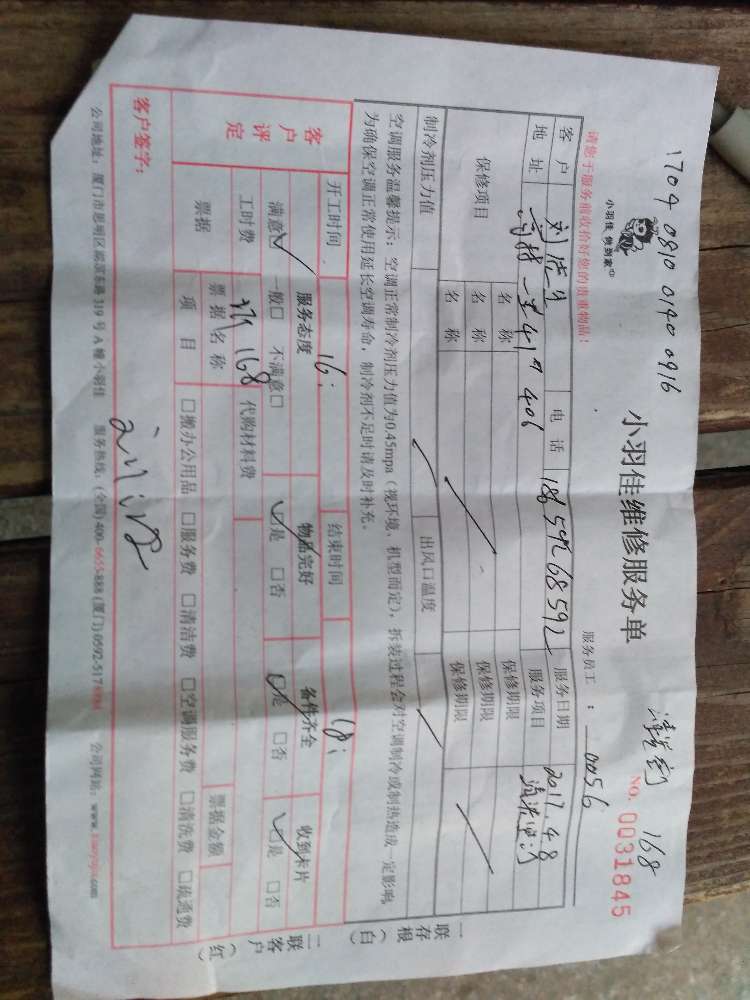 1704 0810 0140 0916
168
小羽佳 快到家
小羽佳维修服务单
No. 0031845
请您于服务前收拾好您的贵重物品!
服务员工 : 0056
客户 电话 18659268592 服务日期 2017.4.8
地址 406 服务项目
保修项目 名称 保修期限
名称 保修期限
名称 保修期限
制冷剂压力值 出风口温度
空调服务温馨提示:空调正常制冷剂压力值为0.45mpa(视环境、机型而定),拆装过程会对空调制冷或制热造成一定影响,
为确保空调正常使用延长空调寿命,制冷剂不足时请及时补充。
开工时间 16: 结束时间 18:
客户评定 服务态度 物品完好 备件齐全 收到卡片
满意☑ 一般□ 不满意□ ☑是 □否 ☑是 □否 ☑是 □否
工时费 168 代购材料费
票据 票据名称 票据金额
项目 □搬办公用品 □服务费 □清洁费 □空调服务费 □清洗费 □疏通费
客户签字:
公司地址:厦门市思明区湖滨东路319号A幢小羽佳 服务热线:(全国)400-6655-888 (厦门)0592-517 公司网站:www.
一联存根(白)
二联客户(红)